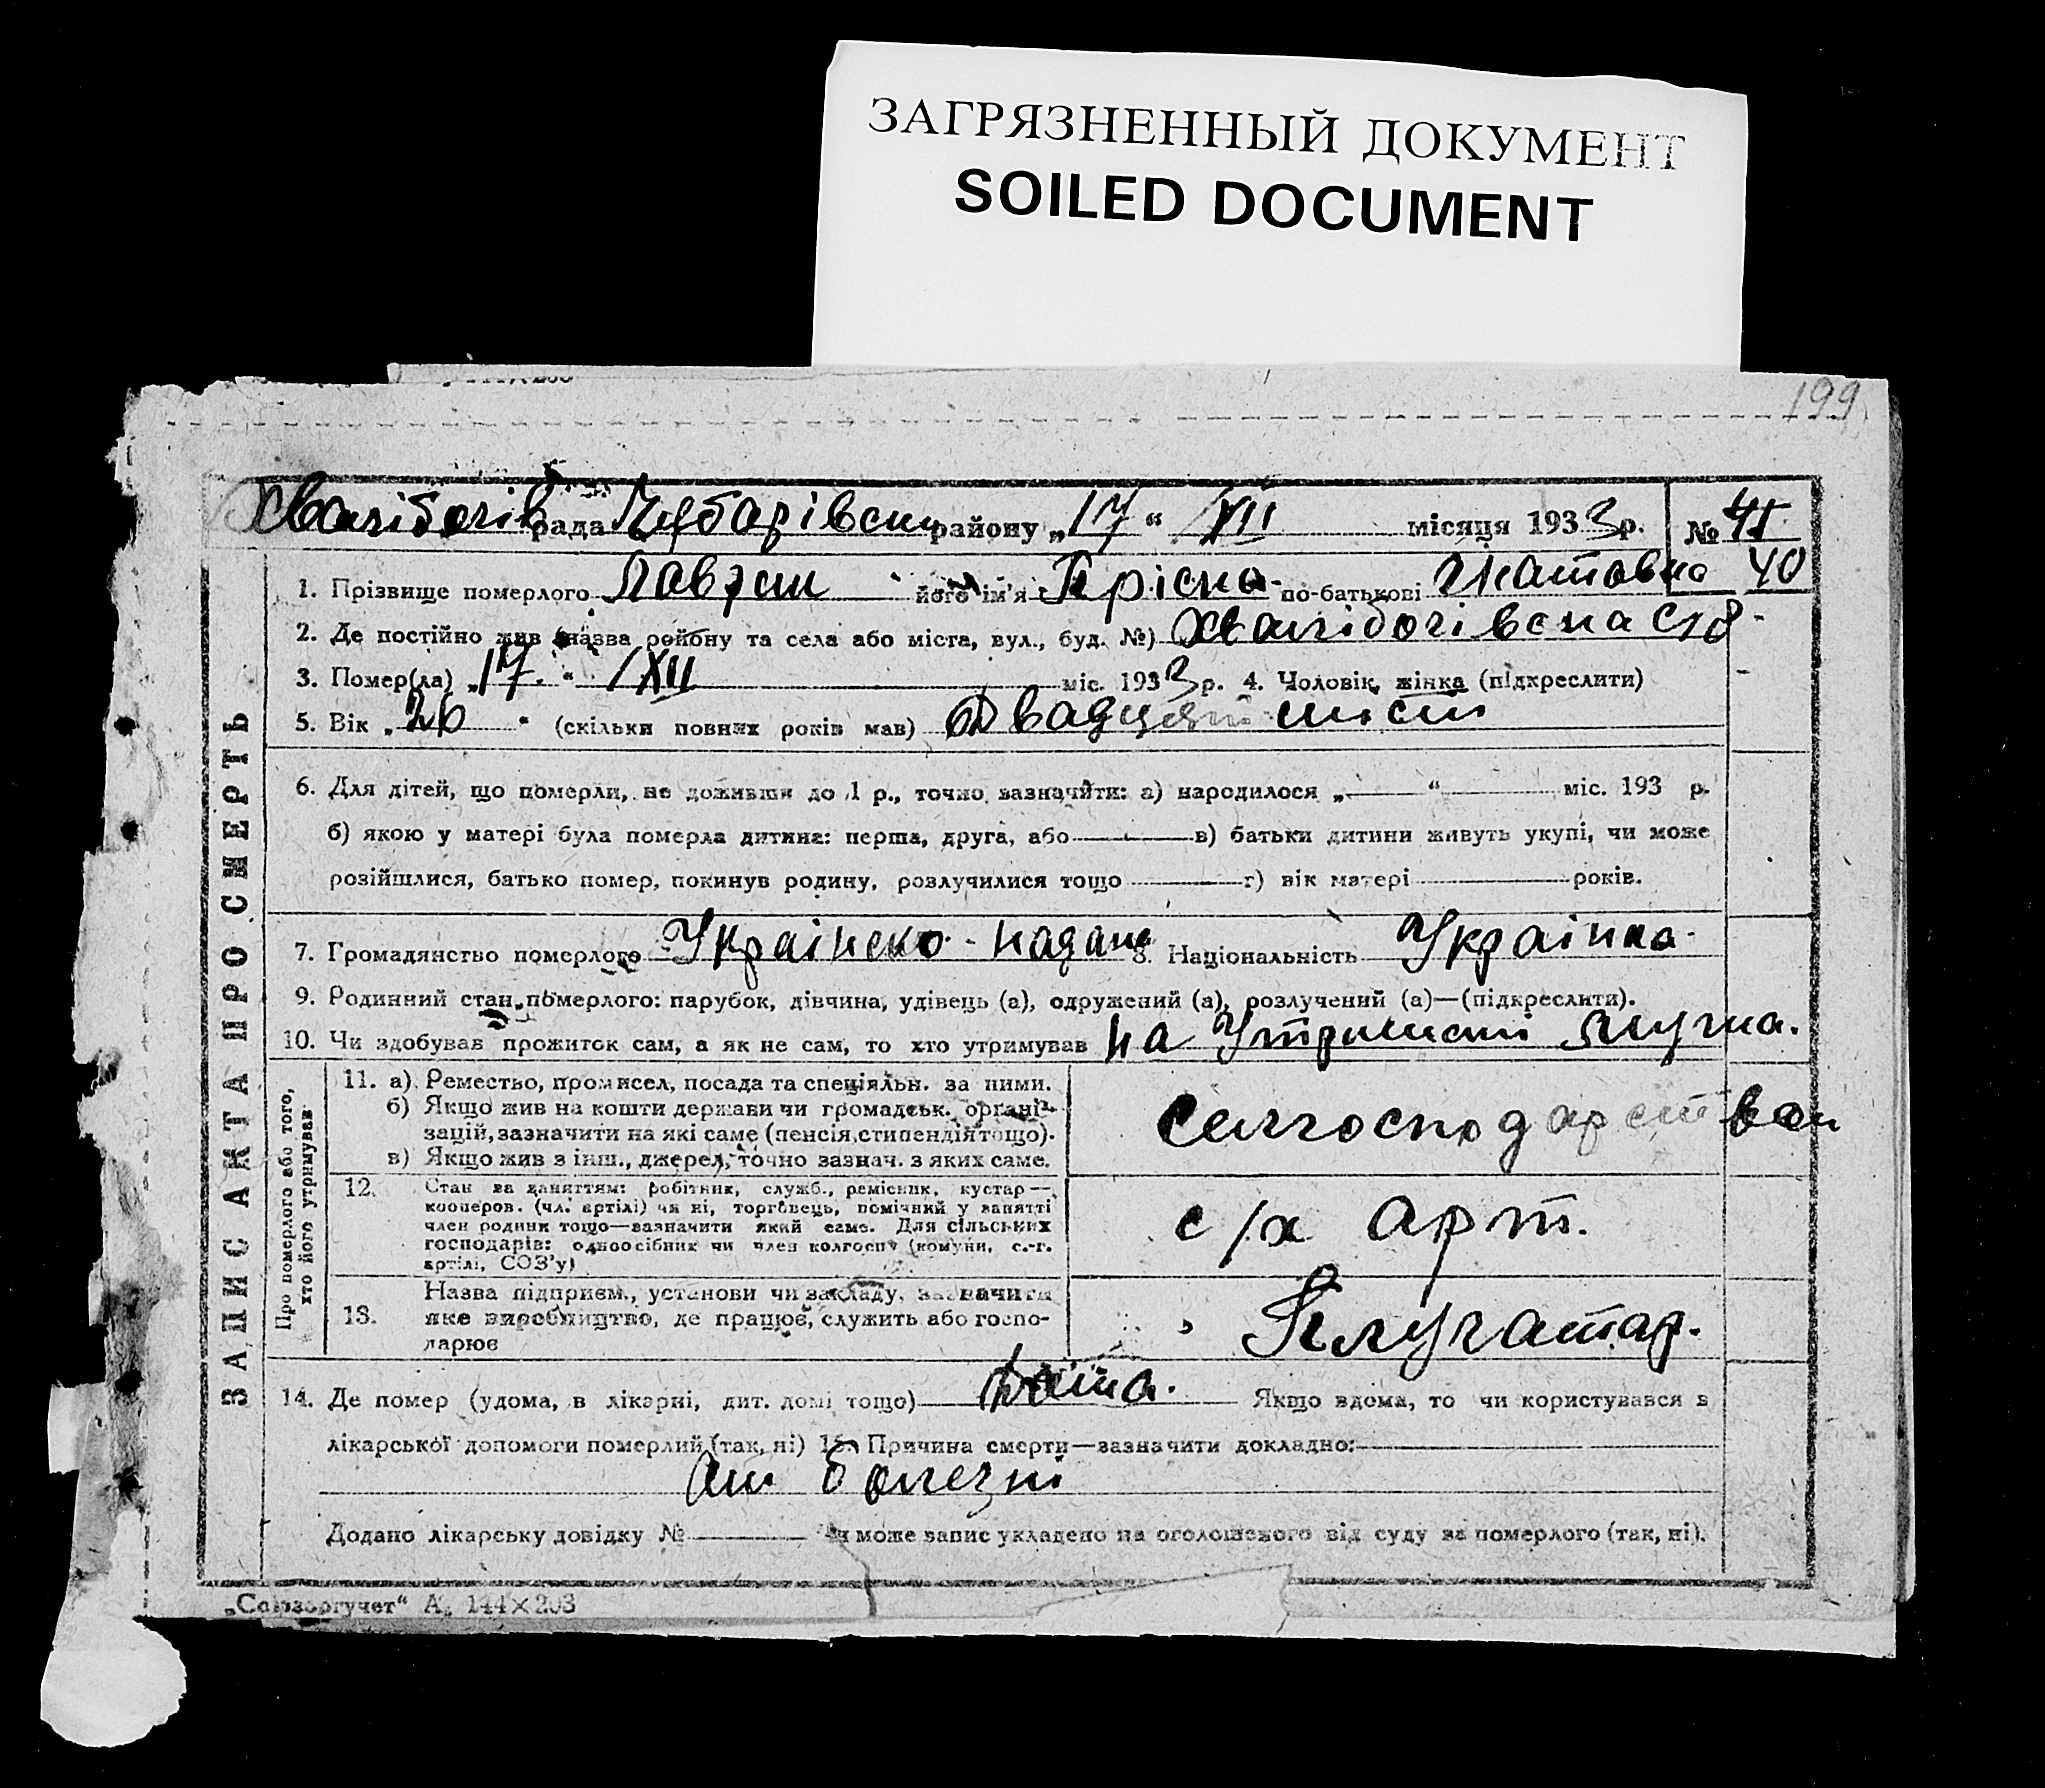 ЗАГРЯЗНЕННЫЙ ДОКУМЕНТ
SOILED DOCUMENT
199
рада Чубарівськ району „17“ XII місяця 1933 р. № 41
40
ЗАПИС АКТА ПРО СМЕРТЬ
1. Прізвище померлого його ім'я Пріська по-батькові Гнатовна
2. Де постійно жив (назва району та села або міста, вул., буд. №)
3. Помер(ла) „17“ XII міс. 1933 р. 4. Чоловік, жінка (підкреслити)
5. Вік „26“ (скільки повних років мав) Двадцят шість
6. Для дітей, що померли, не доживши до 1 р., точно зазначити: а) народилося „ “ міс. 193 р.
б) якою у матері була померла дитина: перша, друга, або в) батьки дитини живуть укупі, чи може
розійшлися, батько помер, покинув родину, розлучилися тощо г) вік матері років.
7. Громадянство померлого Українско-падане 8. Національність Українка
9. Родинний стан померлого: парубок, дівчина, удівець (а), одружений (а), розлучений (а)—(підкреслити).
10. Чи здобував прожиток сам, а як не сам, то хто утримував на
Про померлого або того, хто його утримував
11. а) Ремество, промисел, посада та спеціяльн. за ними.
б) Якщо жив на кошти держави чи громадськ. органі-
зацій, зазначити на які саме (пенсія, стипендія тощо).
в) Якщо жив з інш., джерел, точно зазнач. з яких саме.
12. Стан за заняттям: робітник, служб., ремісник, кустар—
кооперов. (чл. артілі) чи ні, торговець, помічний у занятті
член родини тощо—зазначити який саме. Для сільських
господарів: одноосібник чи член колгоспу (комуни, с.-г.
артілі, СОЗ'у)
с/х арт.
13. Назва підприєм., установи чи закладу, зазначити
яке виробництво, де працює, служить або госпо-
дарює
Плугатар.
14. Де помер (удома, в лікарні, дит. домі тощо) Якщо вдома, то чи користувався в
лікарської допомоги померлий (так, ні) 15. Причина смерти—зазначити докладно:
от болезні
Додано лікарську довідку № Чи може запис укладено на оголошеного від суду за померлого (так, ні).
„Союзоргучет“ А, 144×203